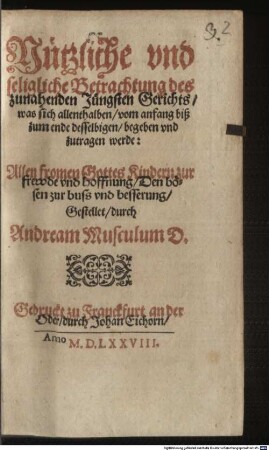 32
Nützliche vnd
seligliche Betrachtung des
zunahenden Jüngsten Gerichts/
was sich allenthalben/ vom anfang biß
zum ende desselbigen/ begeben vnd
zutragen werde:
Allen fromen Gottes Kindern zur
frewde vnd hoffnung/ Den bö-
sen zur buß vnd besserung/
Gestellet/ durch
Andream Musculum D.
Gedruckt zu Franckfurt an der
Oder/ durch Johan Eichorn/
Anno
M. D. LXXVIII.